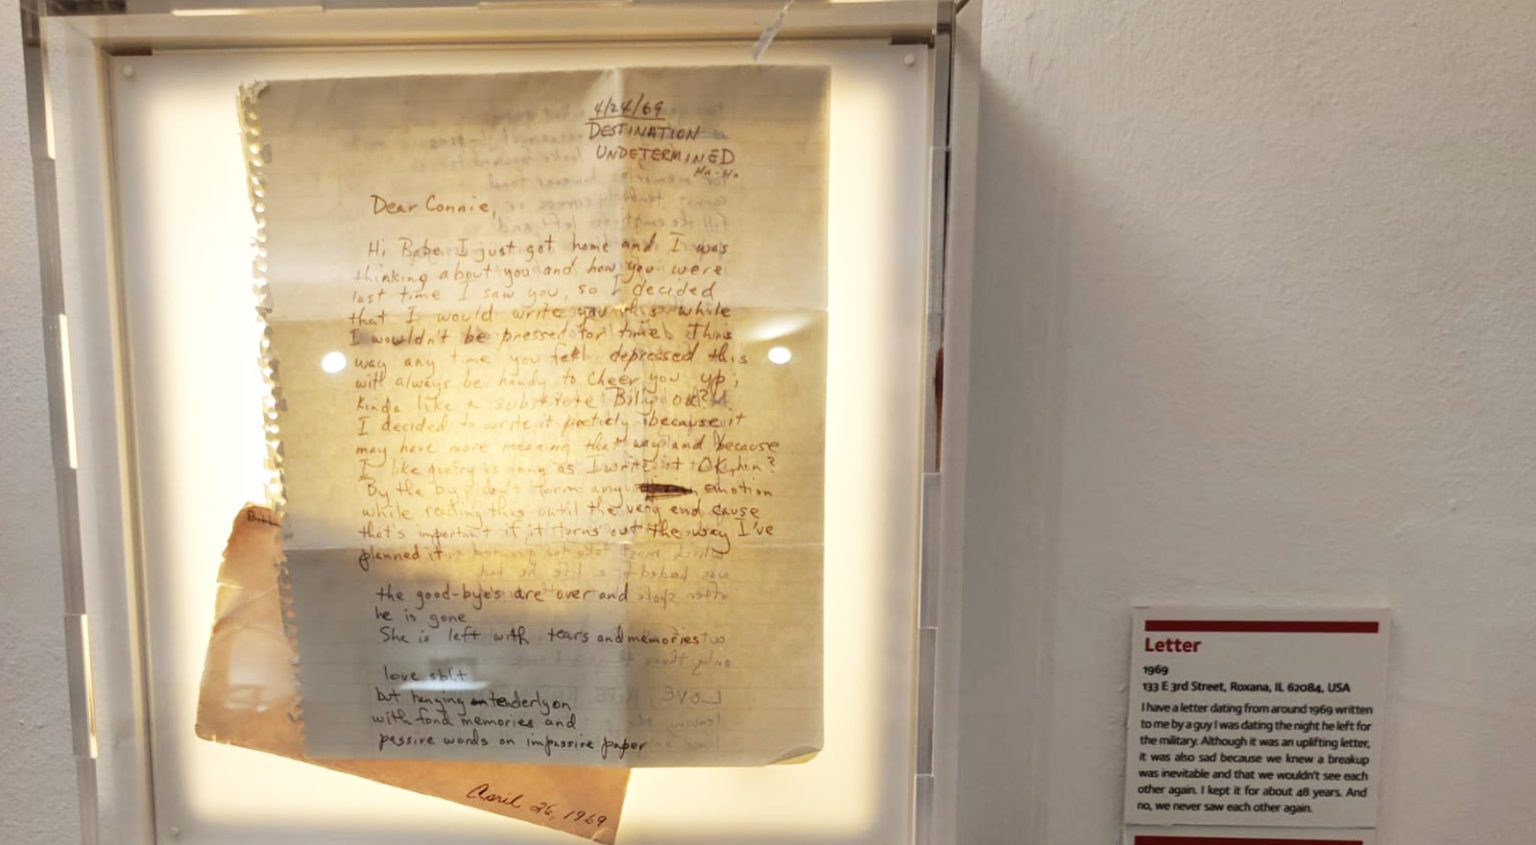 4/24/69
DESTINATION
UNDETERMINED
Ha-Ha
Dear Connie,
Hi Babe I just got home and I was
thinking about you and how you were
last time I saw you, so I decided
that I would write you this while
I wouldn't be pressed for time. This
way any time you feel depressed this
will always be handy to cheer you up,
kinda like a substitute Bill, ok?
I decided to write it poeticly because it
may have more meaning that way and because
I like poetry as long as I write it OK, hun?
By the by, don't form any emotion
while reading this until the very end cause
that's important if it turns out the way I've
planned it.
the good-bye's are over and
he is gone
She is left with tears and memories
love split
but hanging on tenderly on
with fond memories and
passive words on impassive paper
Bill
April 26, 1969
Letter
1969
133 E 3rd Street, Roxana, IL 62084, USA
I have a letter dating from around 1969 written
to me by a guy I was dating the night he left for
the military. Although it was an uplifting letter,
it was also sad because we knew a breakup
was inevitable and that we wouldn't see each
other again. I kept it for about 48 years. And
no, we never saw each other again.